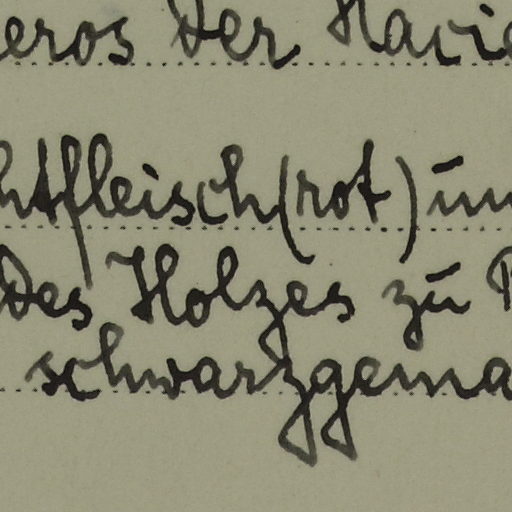 eros der Hacie
htfleisch (rot) un
des Holzes zu
schwarzgema